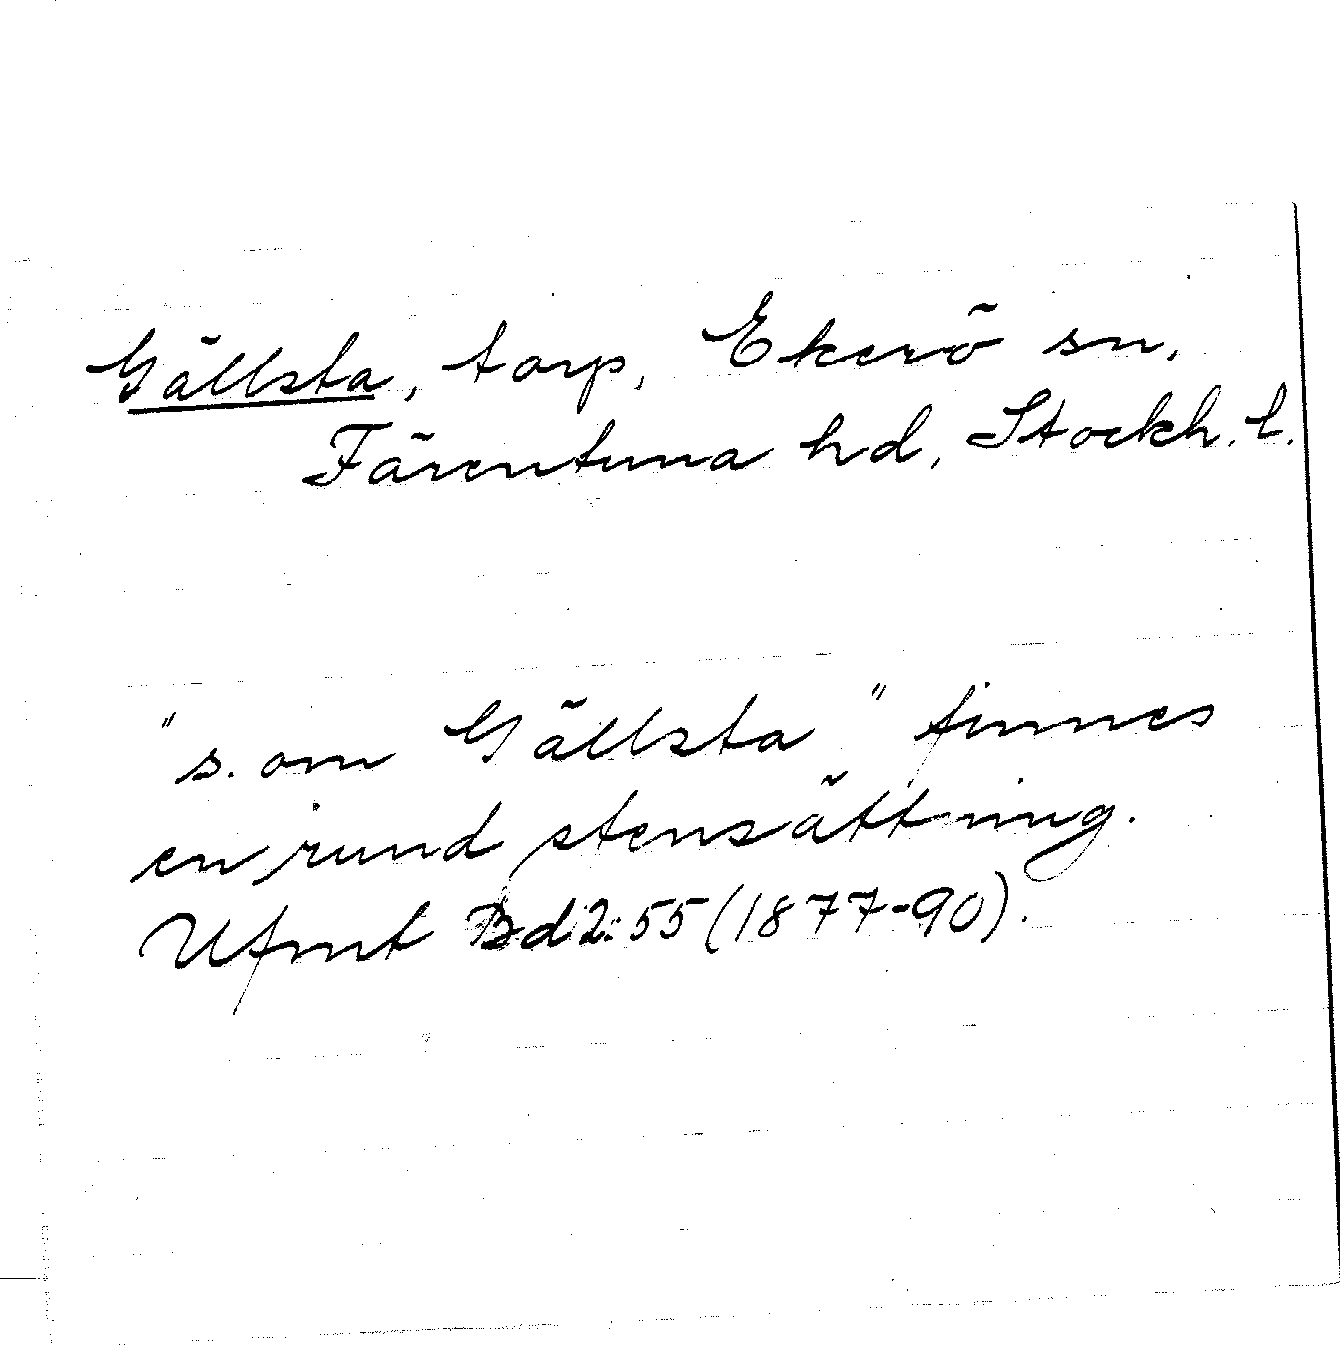 Gällsta, torp, Ekerö sn,
Färentuna hd, Stockh. l.
"s. om Gällsta" finnes
en rund stensättning.
Ufmt Bd 2:55 (1877-90).